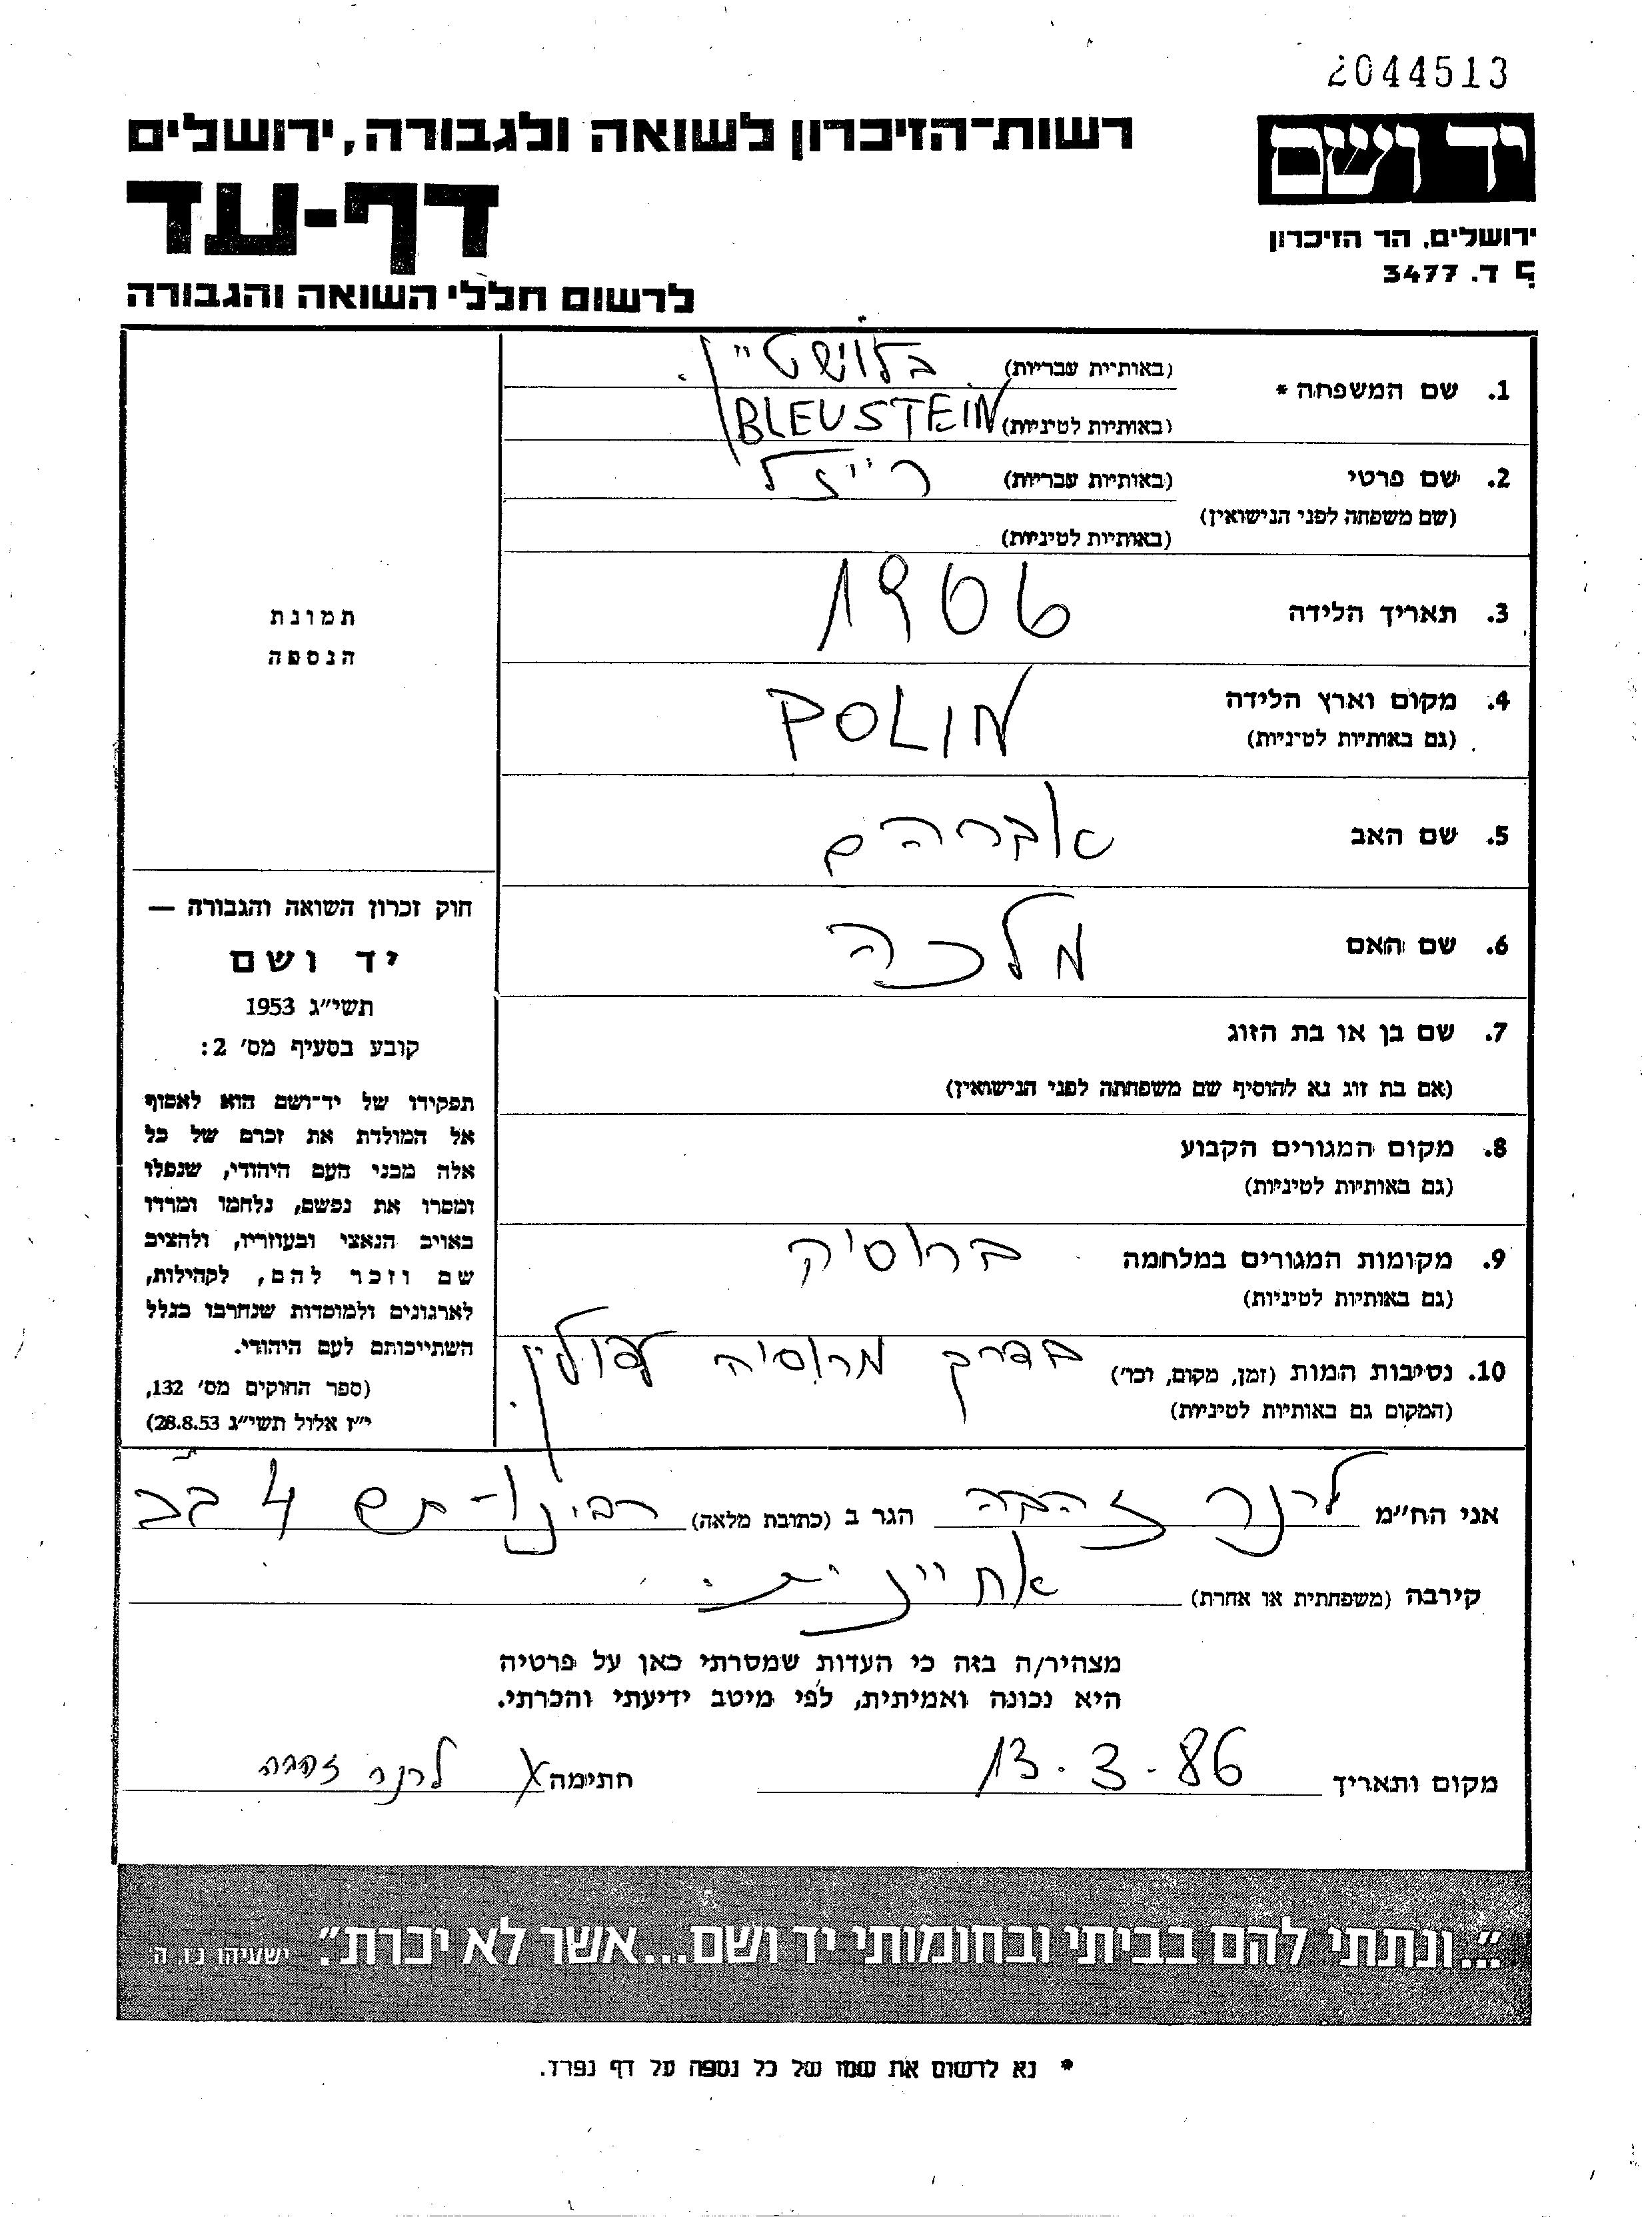 2044513
יד ושם
ירושלים, הר הזיכרון
ת ד. 3477
רשות-הזיכרון לשואה ולגבורה, ירושלים
דף-עד
לרשום חללי השואה והגבורה
1. שם המשפחה * (באותיות עבריות) בלוישטיין
(באותיות לטיניות) BLEUSTEIN
2. שם פרטי (באותיות עבריות) רייזל
(שם משפחה לפני הנישואין)
(באותיות לטיניות)
3. תאריך הלידה 1906
4. מקום וארץ הלידה POLIN
(גם באותיות לטיניות)
5. שם האב אברהם
6. שם האם מלכה
7. שם בן או בת הזוג
(אם בת זוג נא להוסיף שם משפחתה לפני הנישואין)
8. מקום המגורים הקבוע
(גם באותיות לטיניות)
9. מקומות המגורים במלחמה
(גם באותיות לטיניות)
10. נסיבות המות (זמן, מקום, וכד') בדרך מרוסיה לפולין.
(המקום גם באותיות לטיניות)
תמונת
הנספה
חוק זכרון השואה והגבורה —
יד ושם
תשי"ג 1953
קובע בסעיף מס' 2:
תפקידו של יד-ושם הוא לאסוף
אל המולדת את זכרם של כל
אלה מבני העם היהודי, שנפלו
ומסרו את נפשם, נלחמו ומרדו
באויב הנאצי ובעוזריו, ולהציב
שם וזכר להם, לקהילות,
לארגונים ולמוסדות שנחרבו בגלל
השתייכותם לעם היהודי.
(ספר החוקים מס' 132,
י"ז אלול תשי"ג 28.8.53)
אני הח"מ לרנר זהבה הגר ב (כתובת מלאה) רבינו-תם 4 בב
קירבה (משפחתית או אחרת) אחיינית.
מצהיר/ה בזה כי העדות שמסרתי כאן על פרטיה
היא נכונה ואמיתית, לפי מיטב ידיעתי והכרתי.
מקום ותאריך 13.3-86 חתימה X לרנר זהבה
"...ונתתי להם בביתי ובחומותי יד ושם...אשר לא יכרת". ישעיהו נו, ה'
* נא לרשום את שמו של כל נספה על דף נפרד.